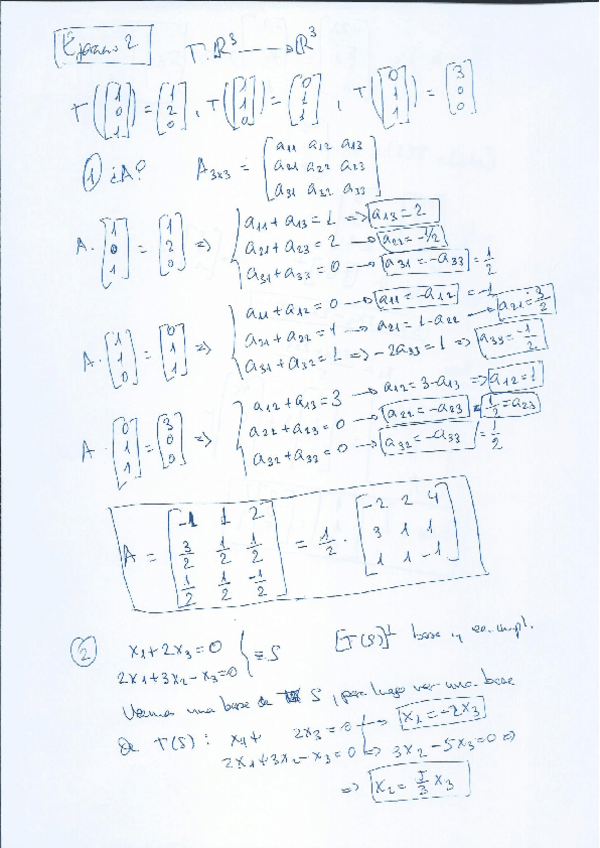 Ejercicio 2 T: ℝ³ ----→ ℝ³
T([1 0 1]) = [1 2 0], T([1 1 0]) = [0 1 1], T([0 1 1]) = [3 0 0]
① ¿A? A3x3 = [a11 a12 a13
a21 a22 a23
a31 a32 a33]
A · [1 0 1] = [1 2 0] => { a11 + a13 = 1 => a13 = 2
a21 + a23 = 2 → a23 = -1/2
a31 + a33 = 0 → a31 = -a33 = 1/2
A · [1 1 0] = [0 1 1] => { a11 + a12 = 0 → a11 = -a12 = -1
a21 + a22 = 1 → a21 = 1 - a22 → a21 = 3/2
a31 + a32 = 1 => -2a33 = 1 => a33 = -1/2
A · [0 1 1] = [3 0 0] => { a12 + a13 = 3 → a12 = 3 - a13 => a12 = 1
a22 + a23 = 0 → a22 = -a23 = 1/2 = a23
a32 + a33 = 0 → a32 = -a33 = 1/2
A = [-1 1 2
3/2 1/2 1/2
1/2 1/2 -1/2] = 1/2 · [-2 2 4
3 1 1
1 1 -1]
② x1 + 2x3 = 0
2x1 + 3x2 - x3 = 0 } ≡ S [T(S)]⊥ base y ec. impl.
Veamos una base de S, para luego ver una base
de T(S): x1 + 2x3 = 0 → x1 = -2x3
2x1 + 3x2 - x3 = 0 => 3x2 - 5x3 = 0 =>
=> x2 = 5/3 x3